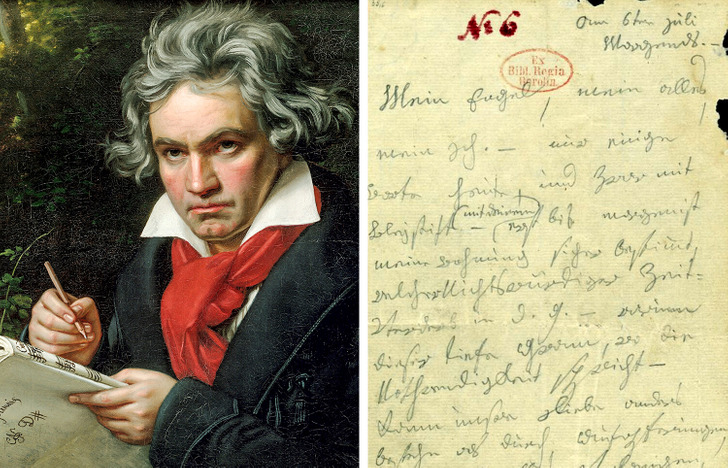 No 6
am 6ten Juli
Morgends. —
Ex
Bibl. Regia
Berolin.
Mein Engel, mein alles
mein Ich. — nur einige
Worte heute, und zwar mit
Bleystift — (mit deinem) bis morgen ist
meine Wohnung sicher bestimmt,
welcher Nichtswürdiger Zeit-
verderb in d. g. — warum
dieser tiefe Gram, wo die
Nothwendigkeit spricht —
Kann unsre Liebe anders
bestehn als durch Aufopferungen,